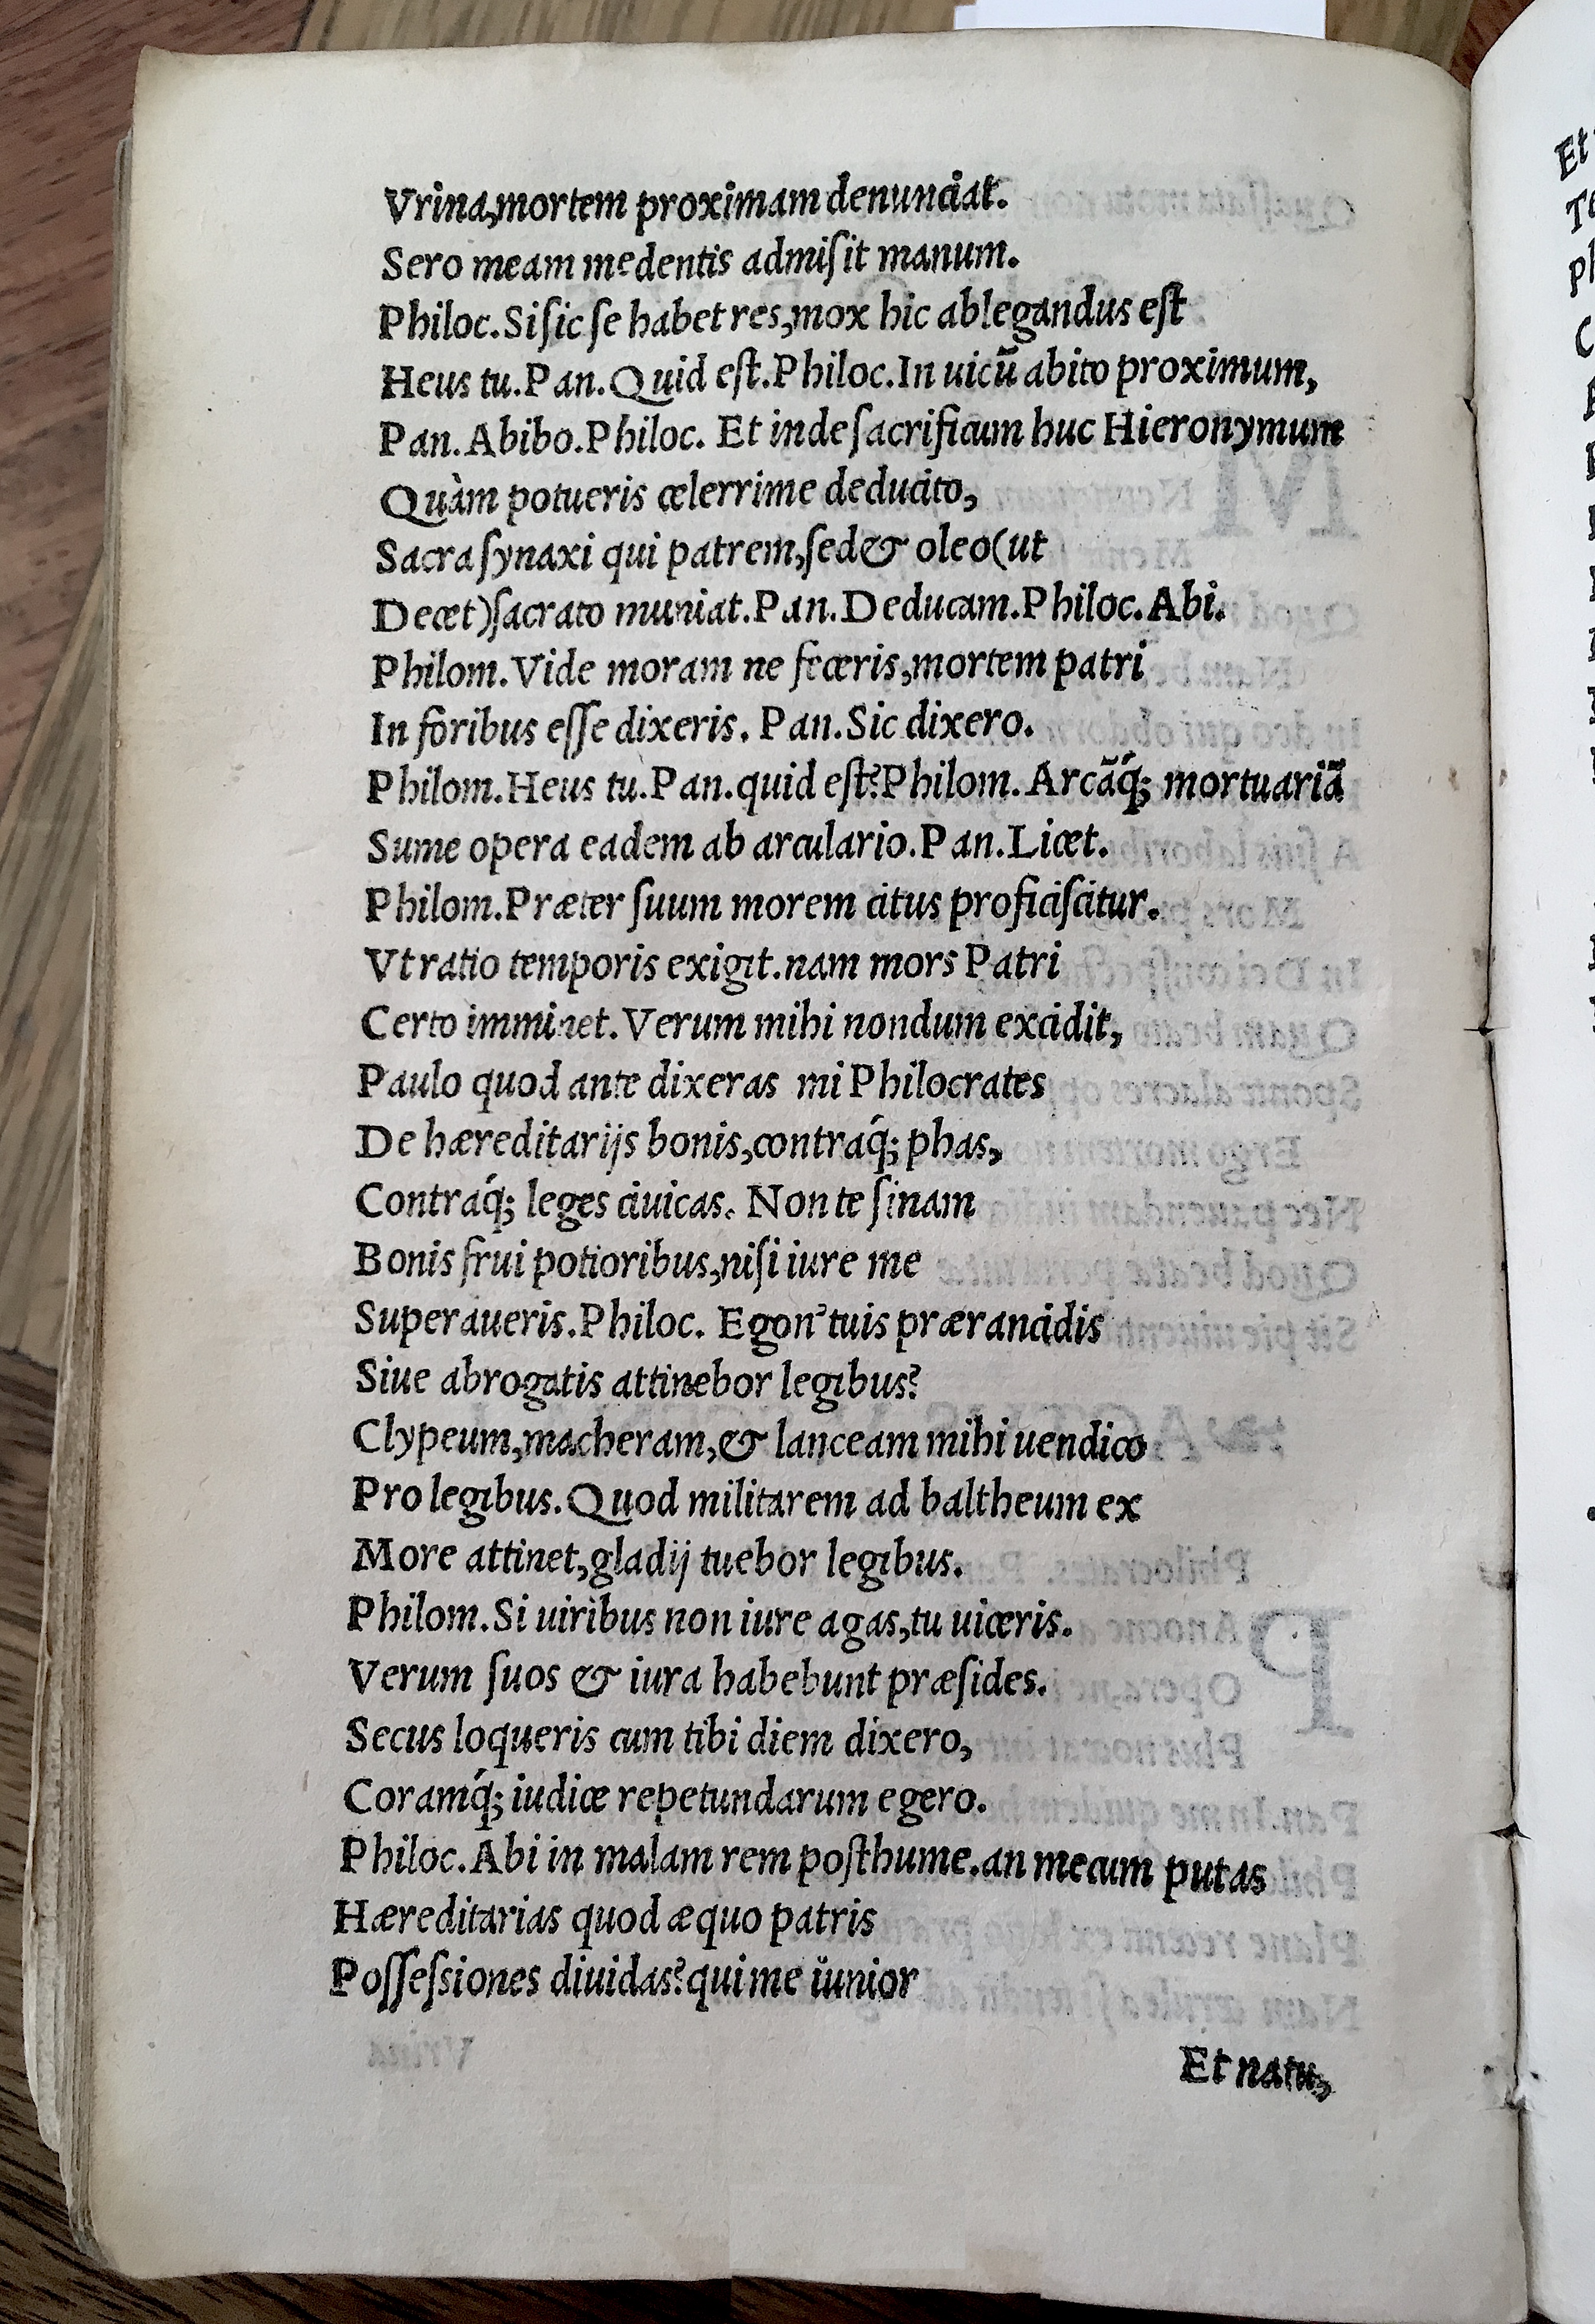 Vrina,mortem proximam denunciat.
Sero meam medentis admiſit manum.
Philoc.Si ſic ſe habet res,mox hic ablegandus eſt
Heus tu.Pan.Quid eſt.Philoc.In uicū abito proximum,
Pan.Abibo.Philoc. Et inde ſacrificum huc Hieronymum
Quàm potueris celerrime deducito,
Sacra ſynaxi qui patrem,ſed & oleo(ut
Decet)ſacrato muniat.Pan.Deducam.Philoc.Abi.
Philom.Vide moram ne feceris,mortem patri
In foribus eſſe dixeris. Pan.Sic dixero.
Philom.Heus tu.Pan.quid eſt?Philom.Arcāq́; mortuariā
Sume opera eadem ab arculario.Pan.Licet.
Philom.Præter ſuum morem citus proficiſcitur.
Vt ratio temporis exigit.nam mors Patri
Certo imminet.Verum mihi nondum excidit,
Paulo quod ante dixeras mi Philocrates
De hæreditarijs bonis,contraq́; phas,
Contraq́; leges ciuicas. Non te ſinam
Bonis frui potioribus,niſi iure me
Superaueris.Philoc. Egon'tuis prærancidis
Siue abrogatis attinebor legibus?
Clypeum,macheram,& lanceam mihi uendico
Pro legibus.Quod militarem ad baltheum ex
More attinet,gladij tuebor legibus.
Philom.Si uiribus non iure agas,tu uiceris.
Verum ſuos & iura habebunt præſides.
Secus loqueris cum tibi diem dixero,
Coramq́; iudice repetundarum egero.
Philoc.Abi in malam rem poſthume.an mecum putas
Hæreditarias quod æquo patris
Poſſeſsiones diuidas?qui me iunior
Et natu,